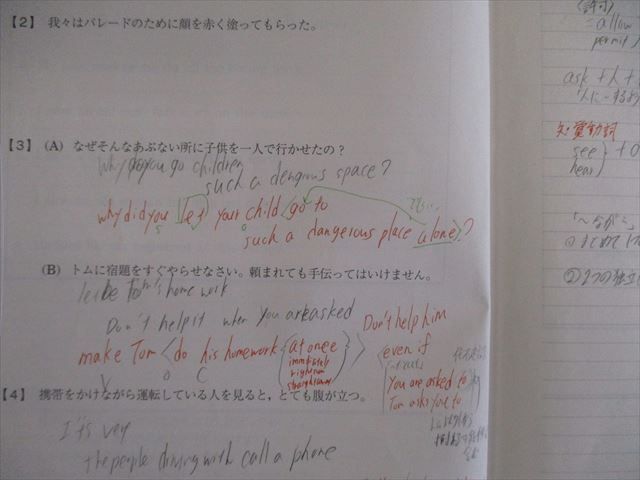 【2】 我々はパレードのために顔を赤く塗ってもらった。
【3】 (A) なぜそんなあぶない所に子供を一人で行かせたの？
Why do you go children
such a dengrous space?
why did you let your child <go to
such a dangerous place alone>?
(B) トムに宿題をすぐやらせなさい。頼まれても手伝ってはいけません。
Tom's home work
Don't help it when you are asked
make Tom <do his homework {at once
immediately
right now
Don't help him
even if
You are asked to
Tom asks you to
V O C
【4】 携帯をかけながら運転している人を見ると，とても腹が立つ。
It's very
the people driving with call a phone
allow
permit
ask + 人 +
知覚動詞
see
hear
} + O
「〜ながら」
①
②2つの独立